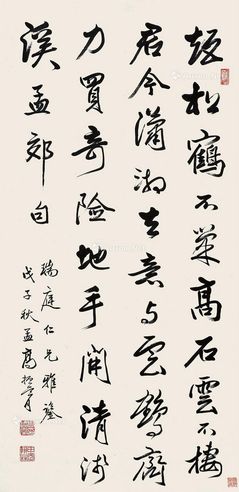 短松鶴不巢高石雲不棲
君今瀟湘去意与雲鶴齊
力買奇險地手開清淺
溪孟郊句
瑞庭仁兄雅鑒
戊子秋孟高振霄